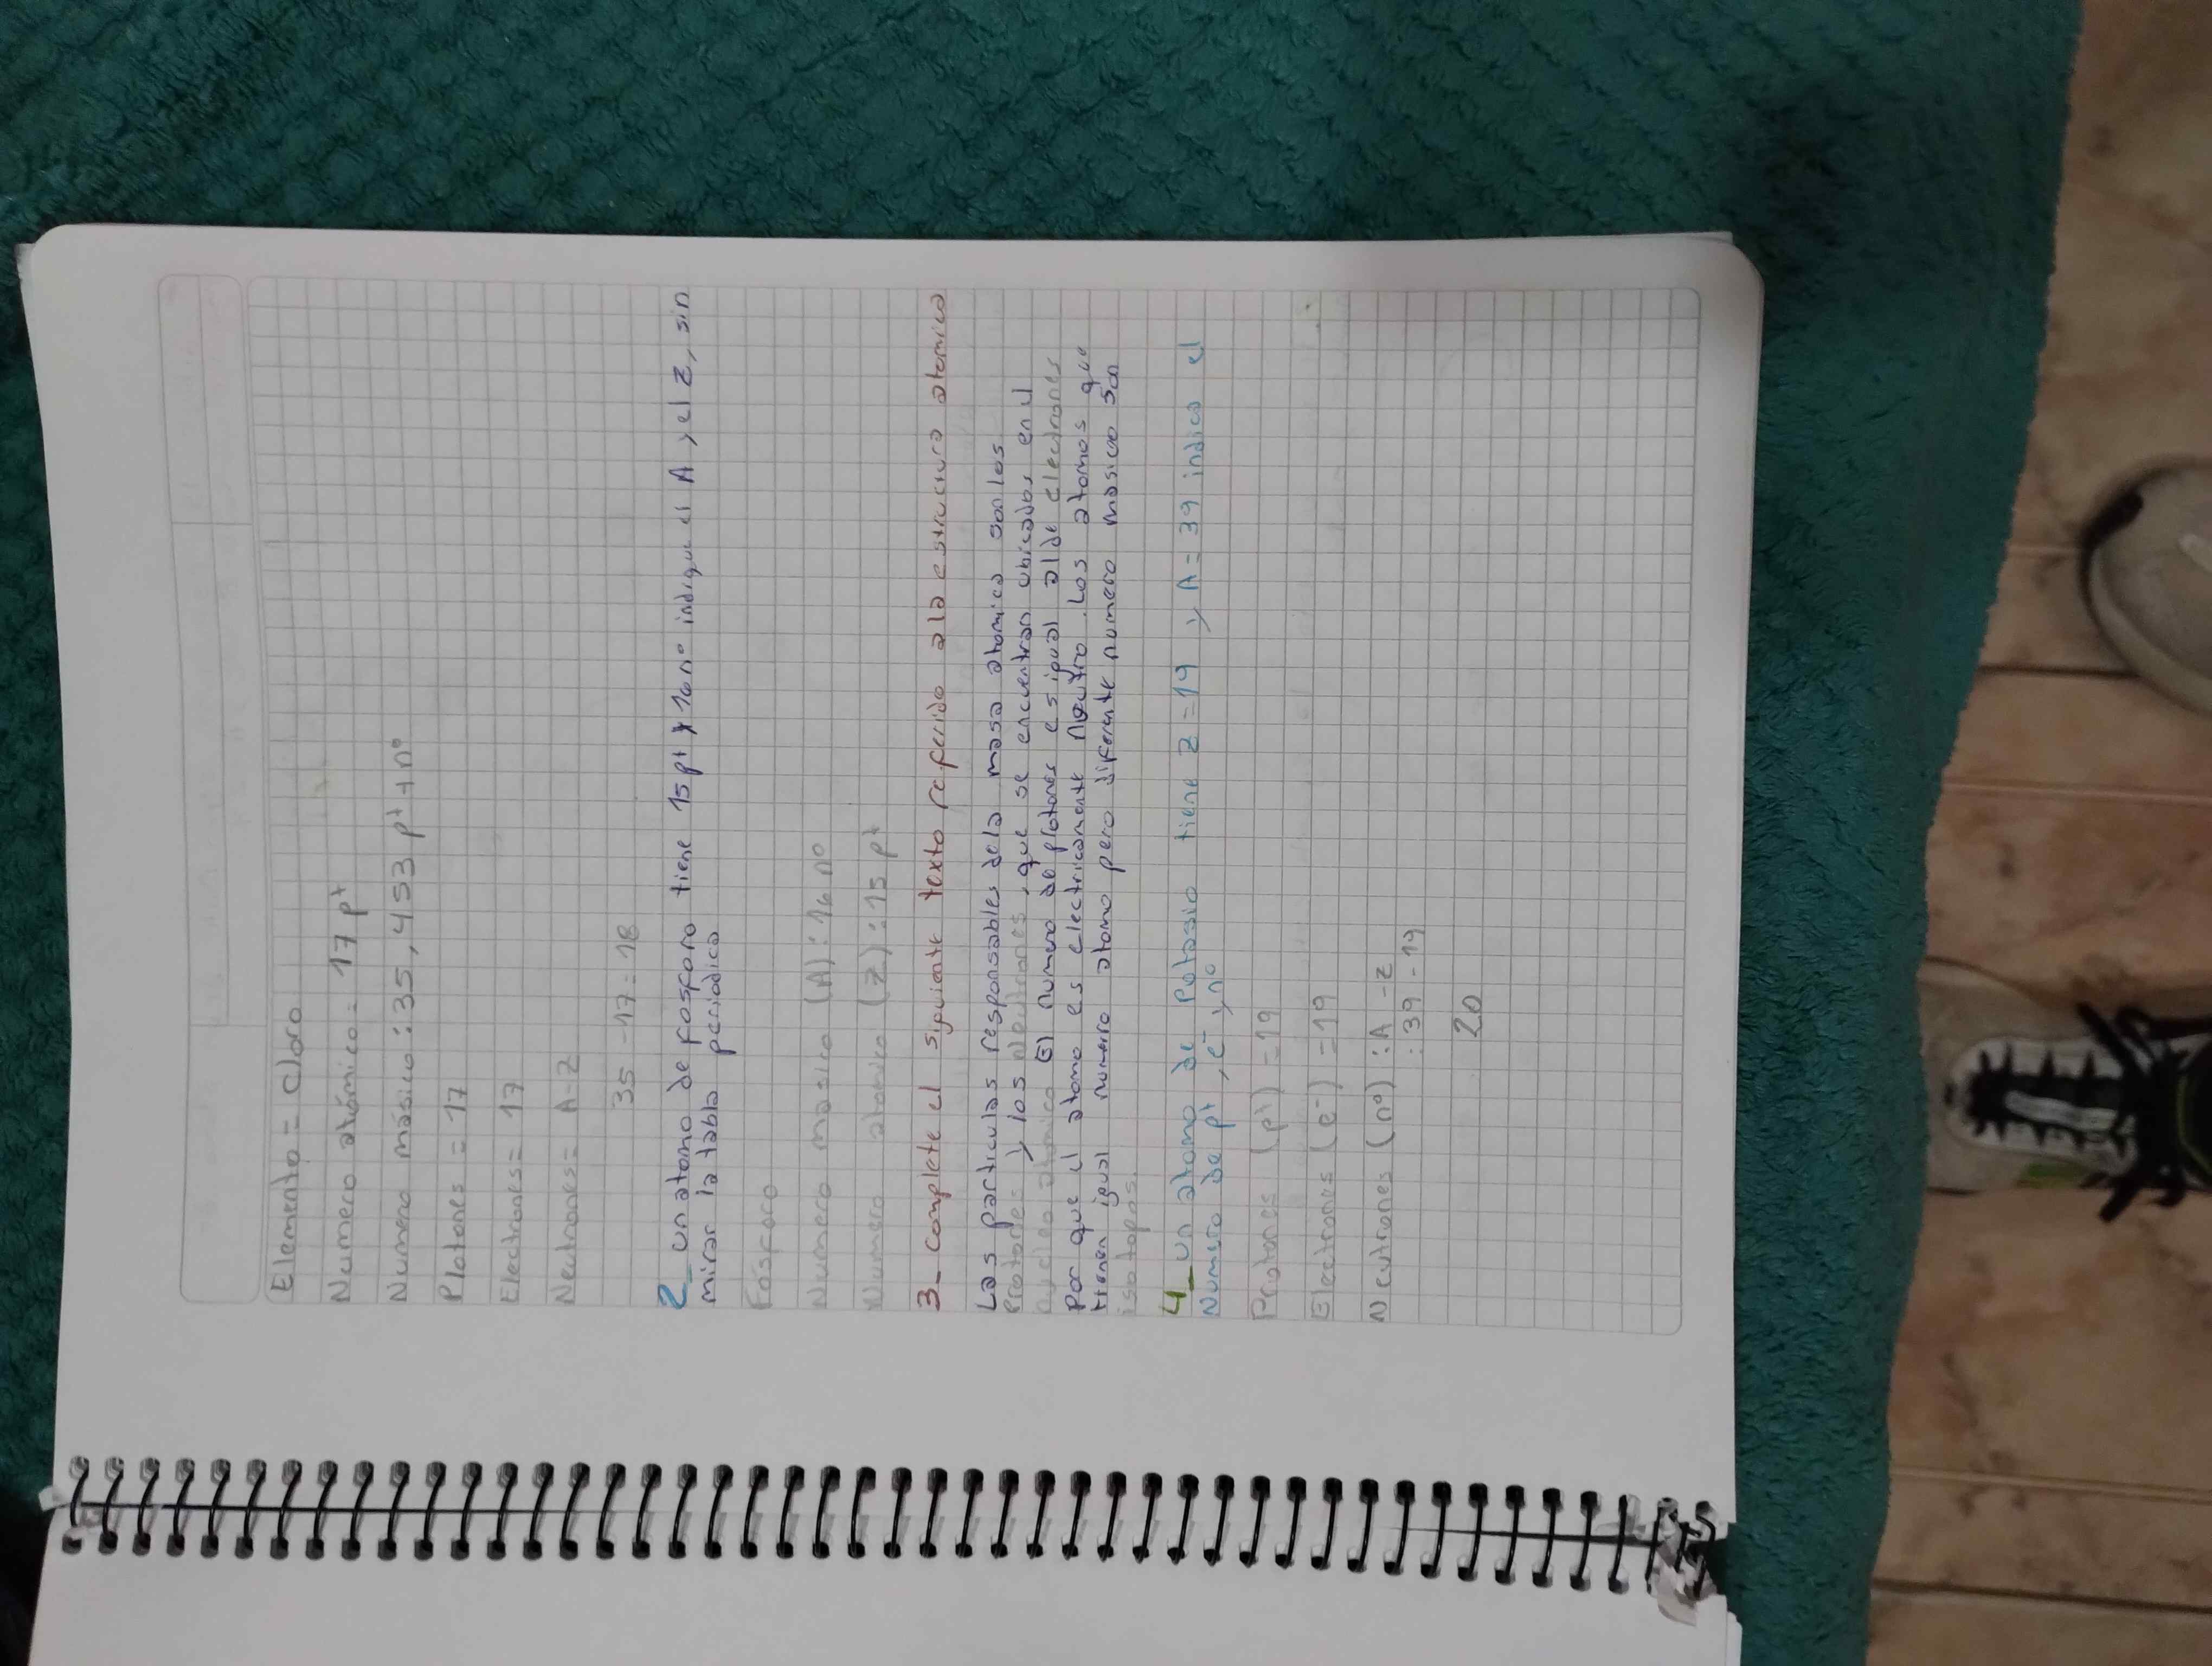 Elemento = Cloro
Numero atómico = 17 p+
Numero másico : 35,453 p+ + n°
Plotones = 17
Electrones = 17
Neutrones = A-Z
35 - 17 = 18
2_ un atomo de fosforo tiene 15 p+ y 16 n° indique el A y el Z, sin
mirar la tabla periodica
Fosforo
Numero masico (A) : 16 n°
Numero atomico (Z) : 15 p+
3_ complete el siguiente texto referido a la estructura atomica
Las particulas responsables de la masa atomica son los
Protones y los Neutrones, que se encuentran ubicados en el
nucleo atomico El numero de protones es igual al de electrones
Por que el atomo es electricamente Neutro. Los atomos que
tienen igual numero atomo pero diferente numero masico son
isotopos.
4_ un atomo de Potasio tiene Z = 19 y A = 39 indica el
Numero de p+, e- y n°
Protones (p+) = 19
Electrones (e-) = 19
Neutrones (n°) : A - Z
: 39 - 19
20